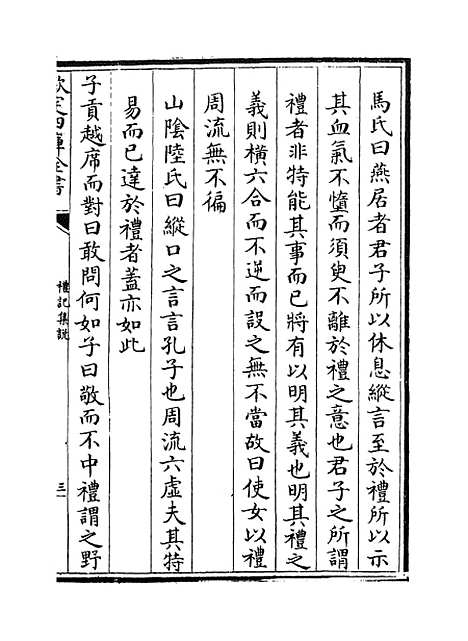 馬氏曰燕居者君子所以休息縱言至於禮所以示
其血氣不惰而須臾不離於禮之意也君子之所謂
禮者非特能其事而已將有以明其義也明其禮之
義則橫六合而不逆而設之無不當故曰使女以禮
周流無不徧
山陰陸氏曰縱口之言言孔子也周流六虛夫其特
易而已達於禮者蓋亦如此
子貢越席而對曰敢問何如子曰敬而不中禮謂之野
欽定四庫全書
禮記集說
三